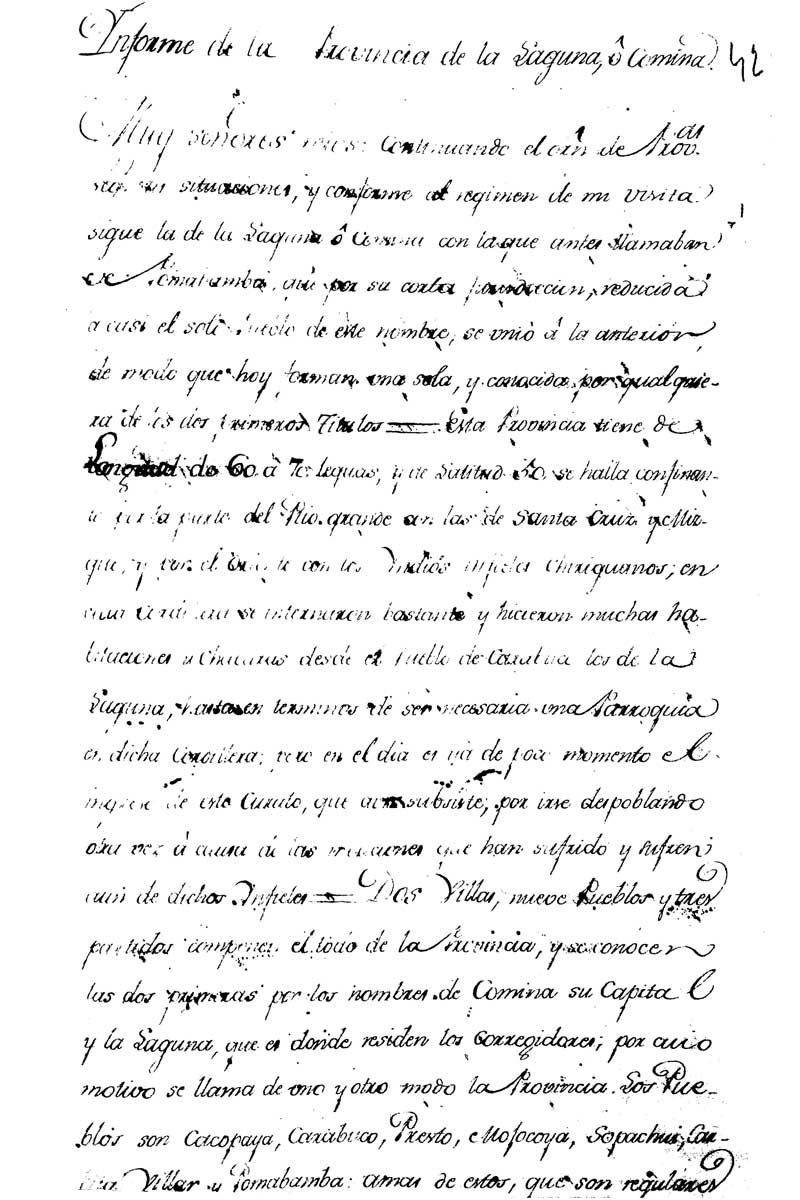 Informe de la Provincia de la Laguna, ô Comina. 42
Muy señores mios: Continuando el orn de Prov.as
segn sus situaciones, y conforme al regimen de mi visita
sigue la de la Laguna ô Comina con la que antes llamaban
de Pomabamba, qûe por su corta fundacion, reducida
a casi el solo Pueblo de este nombre, se unió â la anterior,
de modo que hoy forman una sola, y conocida por qualquie-
ra de los dos primeros Titulos = Esta Provincia tiene de
Longitud de 60 â 70 leguas, y de Latitud 50 se halla confinan-
te por la parte del Rio grande con las de Santa Cruz y Miz-
que, y por el Oriente con los Indios infieles Chiriguanos; en
cuia Cordillera se internaron bastante y hicieron muchas ha-
bitaciones y Chacaras desde el Pueblo de los de la
Laguna, hasta en terminos de ser necessaria una Parroquia
en dicha Cordillera; pero en el dia es yá de poco momento el
ingreso de este Curato, que aun subsiste, por irse despoblando
otra vez â causa de las que han sufrido y sufren
aun de dichos Infieles = Dos Villas, nueve Pueblos y tres
partidos componen el todo de la Provincia, y se conocen
las dos primeras por los nombres de Comina su Capital
y la Laguna, que es donde residen los Corregidores; por cuio
motivo se llama de uno y otro modo la Provincia. Los Pue-
blos son Cacopaya, Carabuco, Presto, Mojocoya, Sopachui,
Villar y Pomabamba: amas de estos, que son regulares